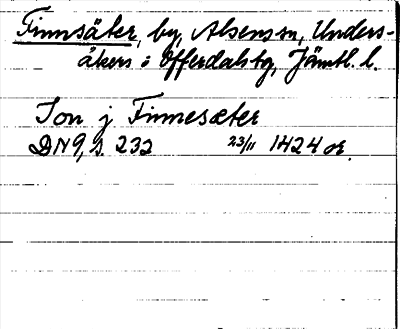 Finnsäter, by, Alsens sn, Unders-
åkers o Offerdals tg, Jämtl. l.
Jon j Finnesæter
DN 9, s. 232 23/11 1424 or.